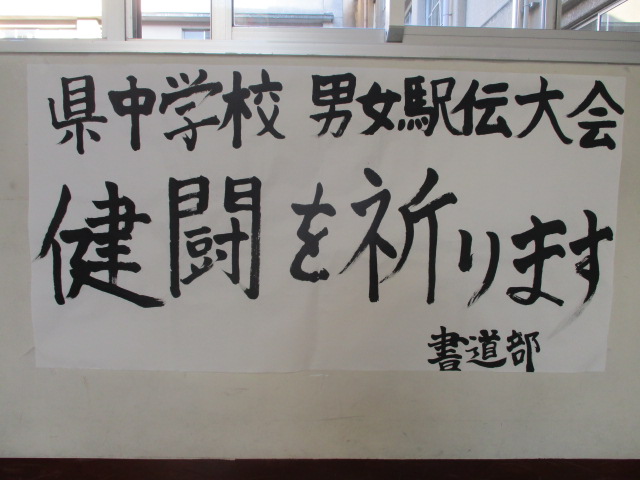 県中学校 男女駅伝大会
健闘を祈ります
書道部